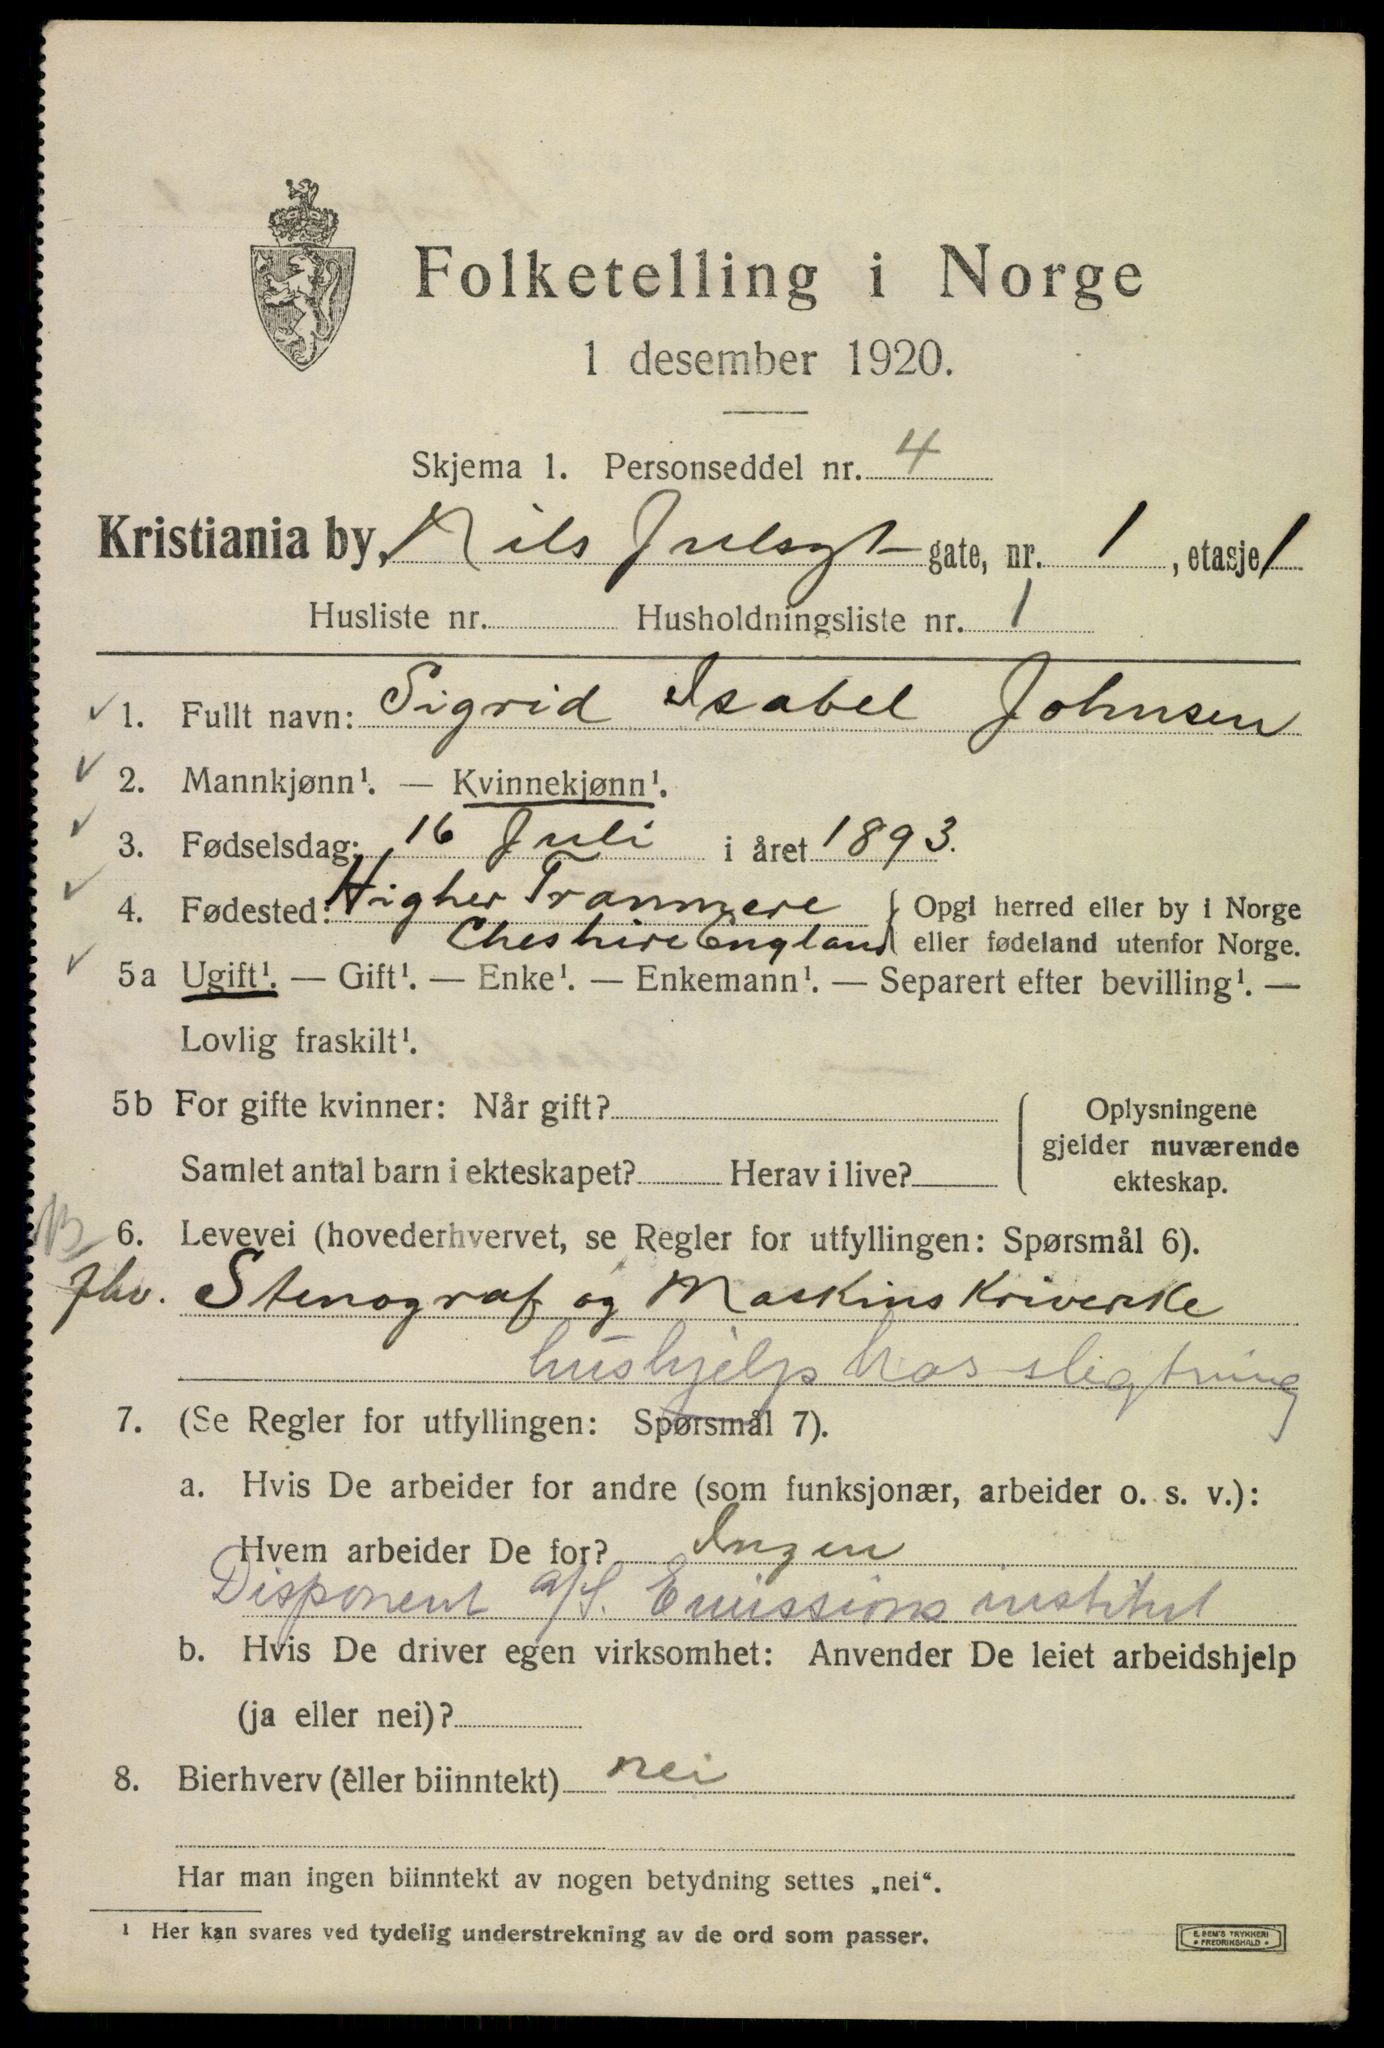 Folketelling i Norge
1 desember 1920.
Skjema 1. Personseddel nr. 4
Kristiania by, Nils Julsgt gate, nr. 1, etasje 1
Husliste nr. Husholdningsliste nr. 1
1. Fullt navn: Sigrid Isabel Johnsen
2. Mannkjønn¹. — Kvinnekjønn¹.
3. Fødselsdag: 16 Juli i året 1893.
4. Fødested: Higher Tranmere { Opgi herred eller by i Norge
Cheshire England eller fødeland utenfor Norge.
5a Ugift¹. — Gift¹. — Enke¹. — Enkemann¹. — Separert efter bevilling¹. —
Lovlig fraskilt¹.
5b For gifte kvinner: Når gift? { Oplysningene
gjelder nuværende
Samlet antal barn i ekteskapet? Herav i live? ekteskap.
6. Levevei (hovederhvervet, se Regler for utfyllingen: Spørsmål 6).
fhv. Stenograf og Maskinskriverske
hushjelp hos slegtning
7. (Se Regler for utfyllingen: Spørsmål 7).
a. Hvis De arbeider for andre (som funksjonær, arbeider o. s. v.):
Hvem arbeider De for? Ingen
Disponent a/S. Emissionsinstitut
b. Hvis De driver egen virksomhet: Anvender De leiet arbeidshjelp
(ja eller nei)?
8. Bierhverv (eller biinntekt) nei
Har man ingen biinntekt av nogen betydning settes „nei“.
¹ Her kan svares ved tydelig understrekning av de ord som passer.
E. SEM'S TRYKKERI
• FREDRIKSHALD •